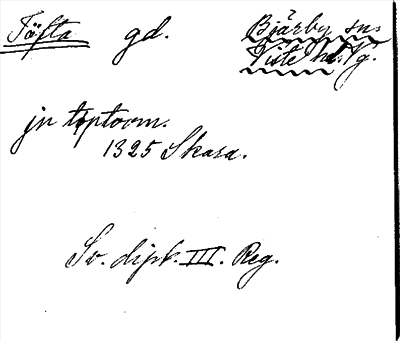 Töfta gd. Bjärby sn.
Viste hd. Vg.
jn toptoom.
1325 Skara.
Sv. dipl. III. Reg.